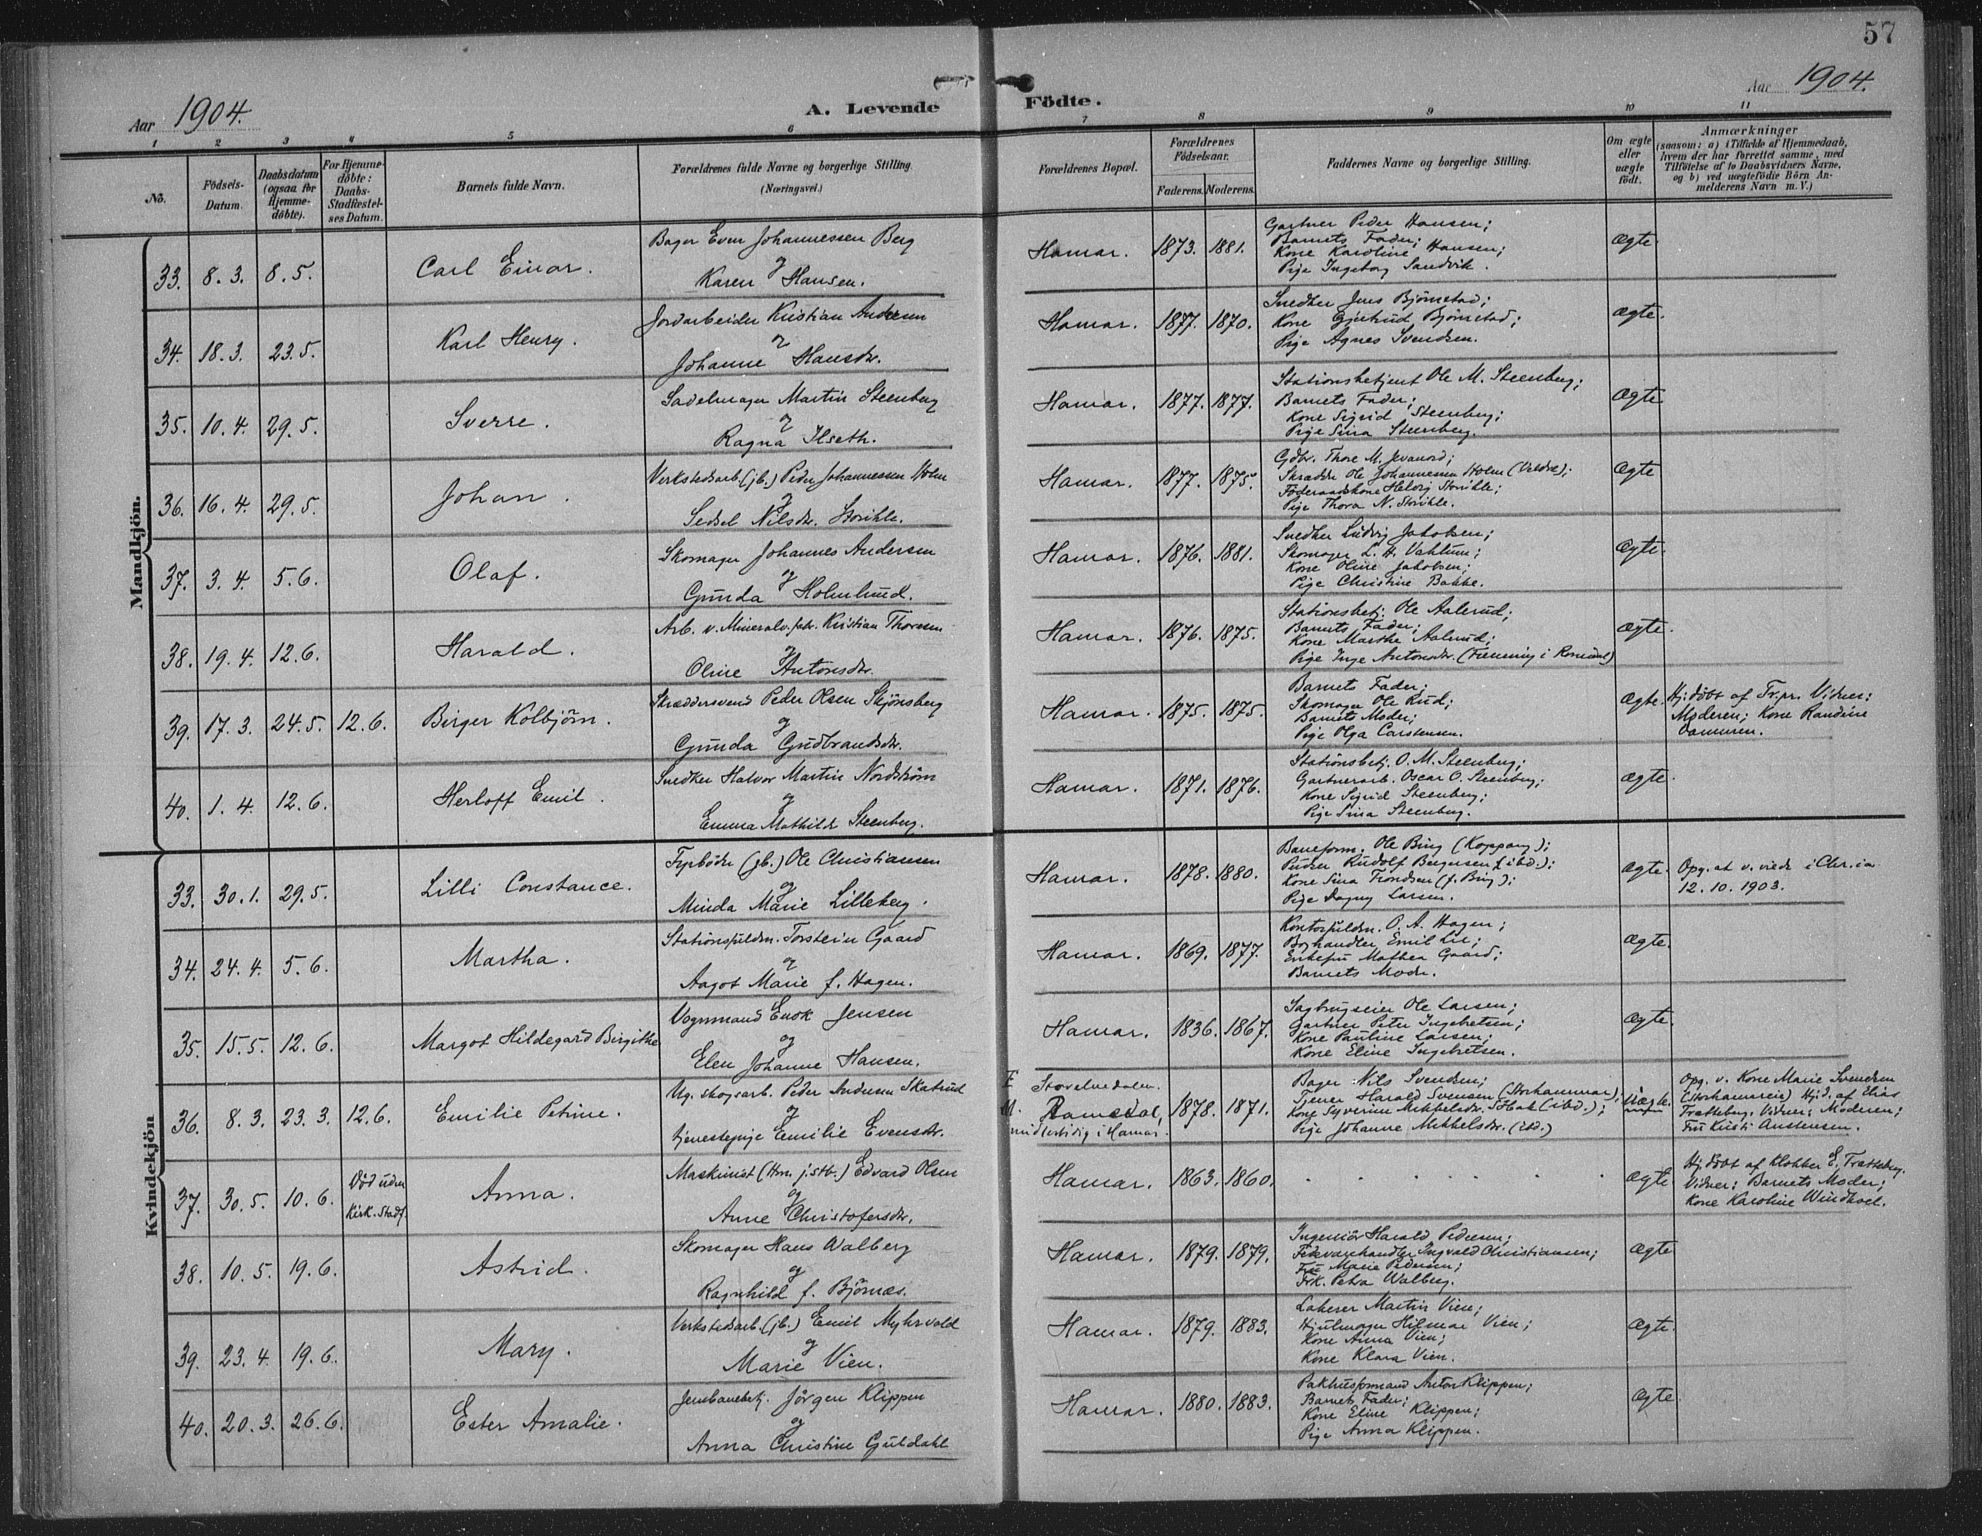 57
Aar 1904.
A. Levende Födte.
Aar 1904.
1 2 3 4 5 6 7 8 9 10 11
No.
Födsels-Datum.
Daabsdatum (ogsaa for Hjemme-döbte).
For Hjemme-döbte: Daabs-Stadfestel-ses Datum.
Barnets fulde Navn.
Forældrenes fulde Navne og borgerlige Stilling.
(Næringsvei.)
Forældrenes Bopæl.
Forældrenes Födselsaar.
Faderens. Moderens.
Faddernes Navne og borgerlige Stilling.
Om ægte eller uægte födt.
Anmærkninger
(saasom: a) i Tilfælde af Hjemmedaab,
hvem der har forrettet samme, med
Tilföielse af to Daabsvidners Navne,
og b) ved uægtefödte Börn An-
melderens Navn m. V.)
Mandkjön.
33. 8.3. 8.5. Carl Einar.
Bager Even Johannessen Berg
og
Karen Hansen.
Hamar. 1873. 1881.
Gartner Peder Hansen;
Barnets Fader;
Kone Karoline Hansen;
Pige Ingeborg Sandvik.
Ægte.
34. 18.3. 23.5. Karl Henry.
Jordarbeider Kristian Andersen
og
Johanne Hansdr.
Hamar. 1877. 1870.
Snedker Jens Bjørnstad;
Kone Gjertrud Bjørnstad;
Pige Agnes Svendsen.
Ægte.
35. 10.4. 29.5. Sverre.
Sadelmager Martin Steenberg
og
Ragna Ilseth.
Hamar. 1877. 1877.
Stationsbetjent Ole M. Steenberg;
Barnets Fader;
Kone Sigrid Steenberg;
Pige Sina Steenberg.
Ægte
36. 16.4. 29.5. Johan.
Verkstedsarb. (jb.) Peder Johannessen Holm
og
Sedsel Nilsdr. Storihle.
Hamar. 1877. 1875.
Gdbr. Thore M. Jevanord;
Skrædder Ole Johannessen Holm (Veldre);
Föderaadskone Helvig Storihle;
Pige Thora N. Storihle.
Ægte
37. 3.4. 5.6. Olaf.
Skomager Johannes Andersen
og
Gunda Holmlund.
Hamar. 1876. 1881.
Snedker Ludvig Jakobsen;
Skomager L. H. Vahlum;
Kone Oline Jakobsen;
Pige Christine Bakke.
Ægte.
38. 19.4. 12.6. Harald.
Arb. v. Mineralv.fabr. Kristian Thoresen
og
Oline Antonsdr.
Hamar. 1876. 1875.
Stationsbetj. Ole Aalerud;
Barnets Fader;
Kone Marthe Aalerud;
Pige Inge Antonsdr. (Flemming i Romedal)
Ægte.
39. 17.3. 24.5. 12.6. Birger Kolbjörn.
Skræddersvend Peder Olsen Skjönsberg
og
Gunda Gudbrandsdr.
Hamar. 1875. 1875.
Barnets Fader;
Skomager Ole Rud;
Barnets Moder;
Pige Olga Carstensen.
Ægte. Hj.döbt af Tr.pr. Vidner:
Moderen; Kone Randine

40. 1.4. 12.6. Herloff Emil.
Snedker Halvor Martin Nordström
og
Emma Mathilde Steenberg.
Hamar. 1871. 1876.
Stationsbetj. O. M. Steenberg;
Gartnerarb. Oscar O. Steenberg;
Kone Sigrid Steenberg;
Pige Sina Steenberg.
Ægte.
Kvindekjön
33. 30.1. 29.5. Lilli Constance.
Fyrböder (jb.) Ole Christiansen
og
Minda Marie Lilleberg.
Hamar. 1878. 1880.
Baneform. Ole Bing (Koppang);
Pudser Rudolf Bergersen (ibd.);
Kone Sina Trondsen (f. Bing);
Pige Dagny Larsen.
Ægte. Opg. at v. viede i Chr.ia
12.10.1903.
34. 24.4. 5.6. Martha.
Stationsfuldm. Torstein Gaard
og
Aagot Marie f. Hagen.
Hamar. 1869. 1877.
Kontorfuldm. O. A. Hagen;
Boghandler Emil Lie;
Enkefru Mathea Gaard;
Barnets Moder.
Ægte.
35. 15.5. 12.6. Margot Hildegard Birgithe
Vognmand Enok Jensen
og
Elen Johanne Hansen.
Hamar. 1836. 1867.
Sagbrugseier Ole Larsen;
Gartner Peter Ingebretsen;
Kone Pauline Larsen;
Kone Eline Ingebretsen.
Ægte.
36. 8.3. 23.3. 12.6. Emilie Petrine.
Ug. skogsarb. Peder Andersen Skatrud
og
tjenestepige Emilie Evensdr.
F Storelvedalen.
M. Romedal,
midlertidig i Hamar.
1878. 1871.
Bager Nils Svendsen;
Tjener Harald Svensen (Storhammar);
Kone Syverine Mikkelsdr. (ibd.);
Pige Johanne Mikkelsdr. (ibd.)
Uægte.
Opg. v. Kone Marie Svendsen
(Storhamareie) Hj.d. af Elias
Trætteberg. Vidner: Moderen;
Fru Kristi Anstensen.
37. 30.5. 10.6. Död uden Kirk. Stadf. Anna.
Maskinist (Hm. j.stb.) Edvard Olsen
og
Anne Christofersdr.
Hamar. 1863. 1860.
Ægte
Hj.döbt af Klokker E. Trætteberg.
Vidner: Barnets Moder;
Kone Karoline Windhoel.
38. 10.5. 19.6. Astrid.
Skomager Hans Walberg
og
Ragnhild f. Björnæs.
Hamar. 1879. 1879.
Ingeniör Harald Pedersen;
Fedevarehandler Ingvald Christiansen;
Fru Marie Pedersen;
Frk. Petra Walberg.
Ægte
39. 23.4. 19.6. Mary.
Verkstedsarb. (jb.) Emil Myhrvold
og
Marie Vien.
Hamar. 1879. 1883.
Lakerer Martin Vien;
Hjulmager Hilmar Vien;
Kone Anna Vien;
Kone Klara Vien.
Ægte.
40. 20.3. 26.6. Ester Amalie.
Jernbanebetj. Jörgen Klippen
og
Anna Christine Guldahl
Hamar. 1880. 1883.
Pakhusformand Anton Klippen;
Barnets Fader;
Kone Eline Klippen;
Pige Anna Klippen.
Ægte